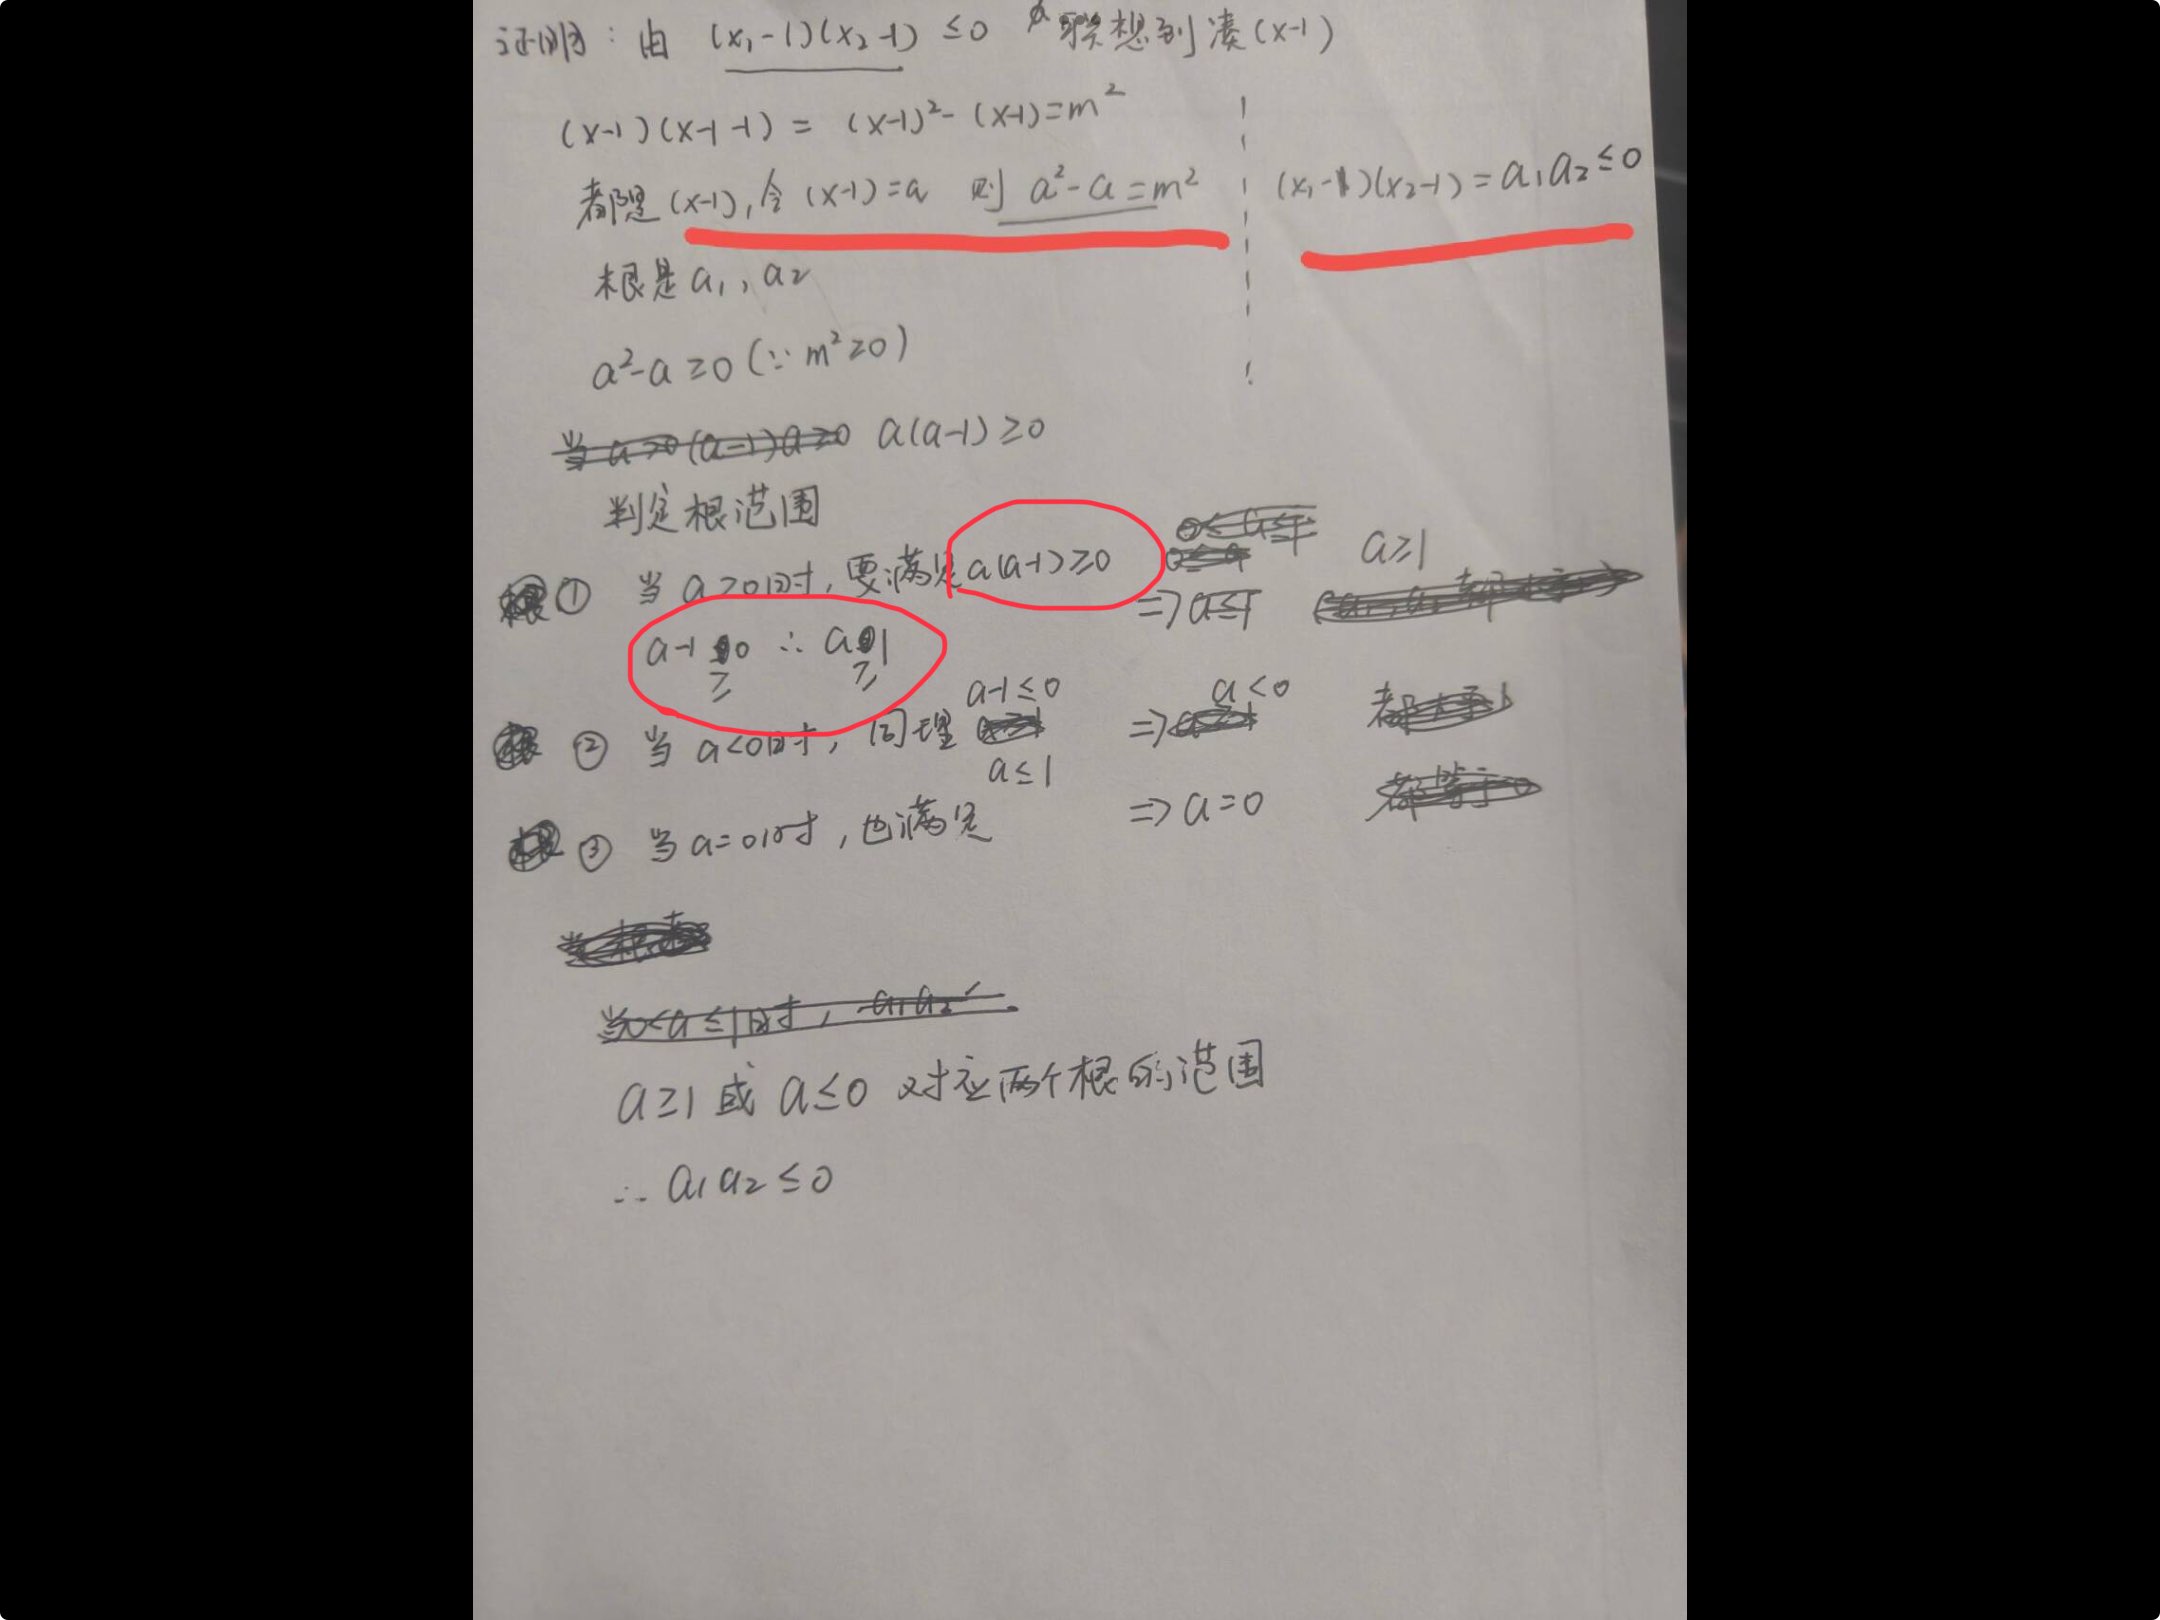 证明：由 (x₁-1)(x₂-1) ≤0 联想到凑(x-1)
(x-1)(x-1-1) = (x-1)²-(x-1)=m²
都是(x-1),令(x-1)=a 则 a²-a=m²
(x₁-1)(x₂-1)=a₁a₂≤0
根是a₁,a₂
a²-a≥0(∵m²≥0)
当a>0(a-1)a≥0 a(a-1)≥0
判定根范围
① 当a>0时,要满足a(a-1)≥0 a≥1
a-1≥0 ∴a≥1 ⇒a≤1
② 当a<0时,同理 a-1≤0 ⇒ a<0
a≤1
③ 当a=0时,也满足 ⇒a=0
都等于0
当0<a≤1时, a₁a₂
a≥1或a≤0 对应两个根的范围
∴a₁a₂≤0